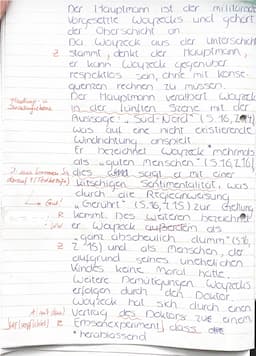 Der Hauptmann ist der militärische
Vorgesetzte Woyzecks und gehört
der Oberschicht an.
Z
Da Woyzeck aus der Unterschicht
stammt, denkt der Hauptmann,
er kann Woyzeck gegenüber
respektlos sein, ohne mit Konse-
quenzen rechnen zu müssen.
Der Hauptmann veralbert Woyzeck
in der fünften Szene mit der
Aussage: "Süd-Nord" (S.16, Z.
was auf eine nicht existierende
Windrichtung anspielt.
Er bezeichnet Woyzeck *mehrmals
als "guten Menschen" (S.16, Z.16),
dies sagt er mit einer
kitschigen Sentimentalität, was
durch die Regieanweisung
→ Grat!
"Gerührt" (S.16, Z.15) zur Geltung
R
kommt. Des weiteren bezeichnet
er Woyzeck außerdem als
"ganz abscheulich dumm" (S.16,
Z
Z.15) und als Menschen, der
aufgrund seines unehelichen
Kindes keine Moral hätte.
Weitere Demütigungen Woyzecks
erfolgen durch den Doktor.
Woyzeck hat sich durch einen
Vertrag des Doktors zu einem
R
Erbsenexperiment dass die
*herablassend